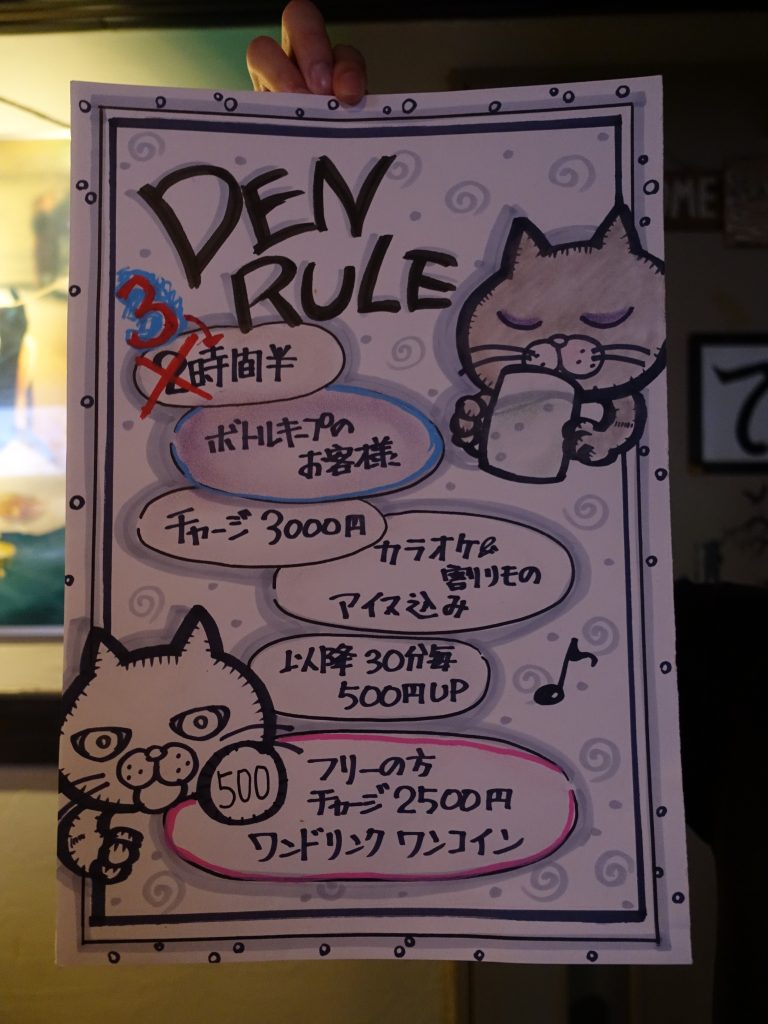 DEN
RULE
3
2時間半
ボトルキープの
お客様
チャージ 3000円
カラオケ&
割りモの
アイス込み
以降 30分毎
500円UP
500
フリーの方
チャージ2500円
ワンドリンク ワンコイン
ME
て